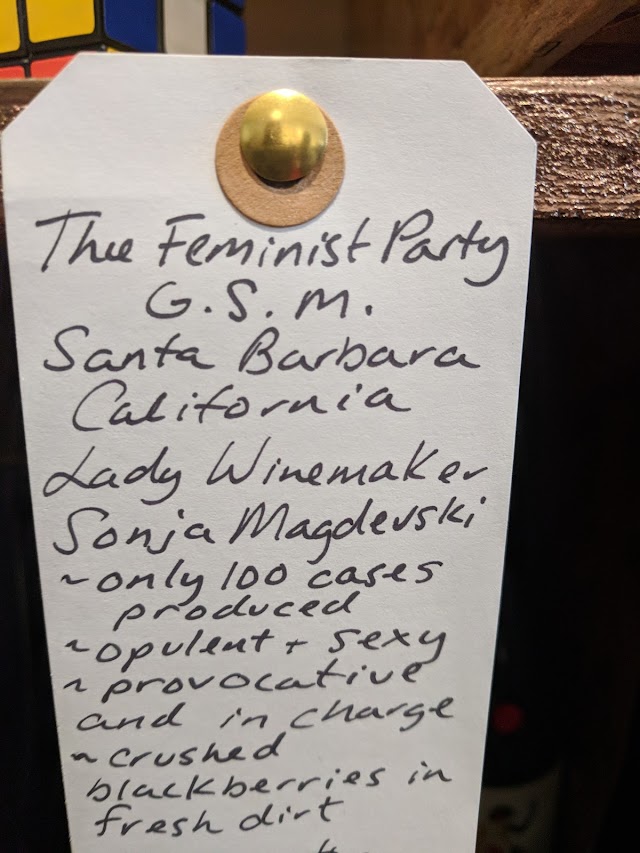 The Feminist Party
G.S.M.
Santa Barbara
California
Lady Winemaker
Sonja Magdevski
~only 100 cases
produced
~opulent + sexy
~provocative
and in charge
~crushed
blackberries in
fresh dirt